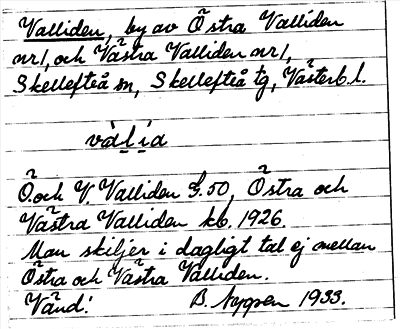 Valliden, by av Östra Valliden
nr 1, och Västra Valliden nr 1,
Skellefteå sn, Skellefteå tg, Västerb. l.
vàl̲i̲a
Ö. och V. Valliden G. 50, Östra och
Västra Valliden kb. 1926.
Man skiljer i dagligt tal ej mellan
Östra och Västra Valliden.
Vänd! B. Nygren 1933.